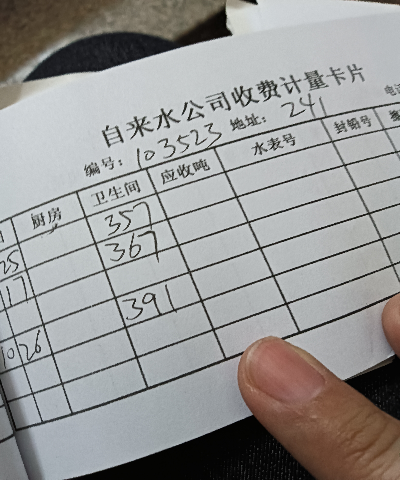 自来水公司收费计量卡片
编号: 103523 地址: 241
厨房 卫生间 应收吨 水表号 封铅号
25 357
17 367
391
10 26